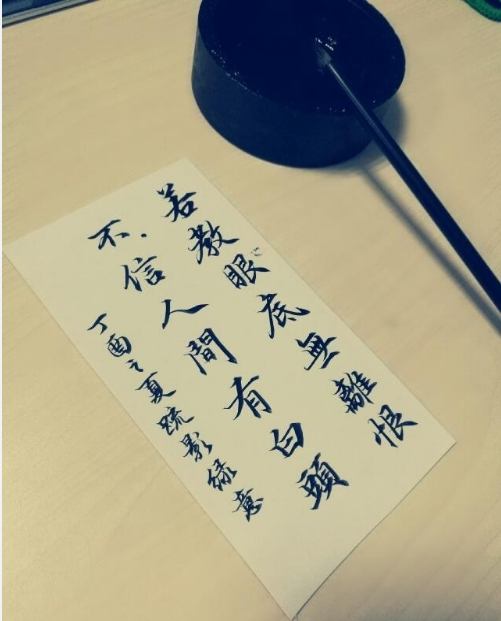 若教眼底無離恨
不信人間有白頭
丁酉之夏疏影綠意